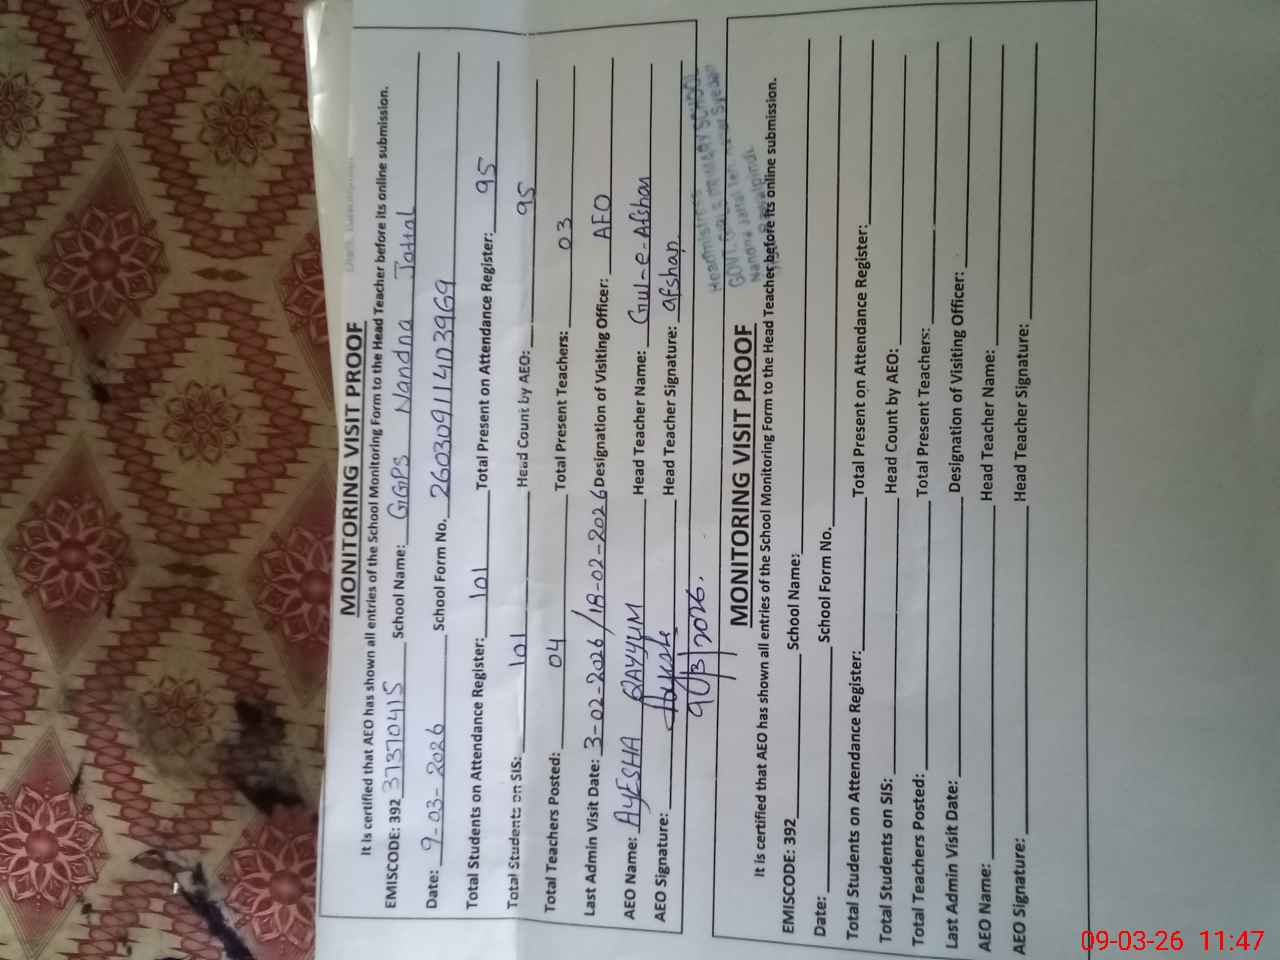 MONITORING VISIT PROOF
It is certified that AEO has shown all entries of the School Monitoring Form to the Head Teacher before its online submission.
EMISCODE: 392 37370415 School Name: GGPS Nandna Jattal
Date: 9-03-2026 School Form No. 260309114D3969
Total Students on Attendance Register: 101 Total Present on Attendance Register: 95
Total Students on SIS: 101 Head Count by AEO: 95
Total Teachers Posted: 04 Total Present Teachers: 03
Last Admin Visit Date: 3-02-2026/18-02-2026 Designation of Visiting Officer: AEO
AEO Name: AYESHA QAYYUM Head Teacher Name: Gul-e-Afshan
AEO Signature: Ayesha Head Teacher Signature: afshan
9/3/2026.
Headmistress
GOVT. GIRLS PRIMARY SCHOOL
Nandna Jattal Syedan
Rawalpindi
MONITORING VISIT PROOF
It is certified that AEO has shown all entries of the School Monitoring Form to the Head Teacher before its online submission.
EMISCODE: 392 School Name:
Date: School Form No.
Total Students on Attendance Register: Total Present on Attendance Register:
Total Students on SIS: Head Count by AEO:
Total Teachers Posted: Total Present Teachers:
Last Admin Visit Date: Designation of Visiting Officer:
AEO Name: Head Teacher Name:
AEO Signature: Head Teacher Signature:
09-03-26 11:47